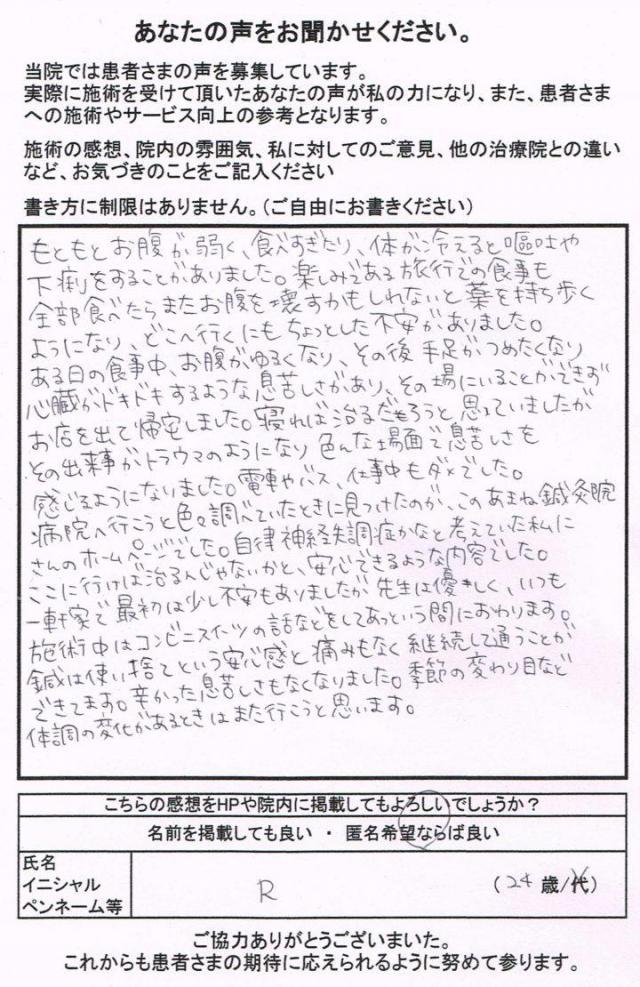 あなたの声をお聞かせください。
当院では患者さまの声を募集しています。
実際に施術を受けて頂いたあなたの声が私の力になり、また、患者さま
への施術やサービス向上の参考となります。
施術の感想、院内の雰囲気、私に対してのご意見、他の治療院との違い
など、お気づきのことをご記入ください
書き方に制限はありません。（ご自由にお書きください）
もともとお腹が弱く、食べすぎたり、体が冷えると嘔吐や
下痢をすることがありました。楽しみである旅行での食事も
全部食べたらまたお腹を壊すかもしれないと薬を持ち歩く
ようになり、どこへ行くにもちょっとした不安がありました。
ある日の食事中、お腹がゆるくなり、その後手足がつめたくなり
心臓がドキドキするような息苦しさがあり、その場にいることができず
お店を出て帰宅しました。寝れば治るだろうと思っていましたが
その出来事がトラウマのようになり色んな場面で息苦しさを
感じるようになりました。電車やバス、仕事中もダメでした。
病院へ行こうと色々調べていたときに見つけたのが、このあまね鍼灸院
さんのホームページでした。自律神経失調症かなと考えていた私に
ここに行けば治るんじゃないかと、安心できるような内容でした。
一軒家で最初は少し不安もありましたが先生は優しく、いつも
施術中はコンビニスイーツの話などをしてあっという間におわります。
鍼は使い捨てという安心感と痛みもなく継続して通うことが
できてます。辛かった息苦しさもなくなりました。季節の変わり目など
体調の変化があるときはまた行こうと思います。
こちらの感想をHPや院内に掲載してもよろしいでしょうか？
名前を掲載しても良い ・ 匿名希望ならば良い
氏名
イニシャル
ペンネーム等
R
（24 歳/代）
ご協力ありがとうございまいた。
これからも患者さまの期待に応えられるように努めて参ります。